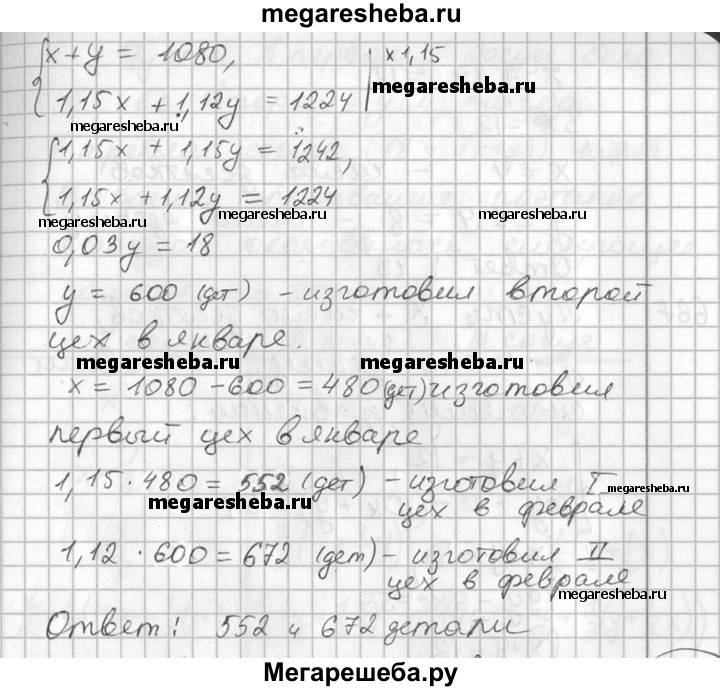 megaresheba.ru
{x+y = 1080, | x 1,15
megaresheba.ru
1,15x + 1,12y = 1224
megaresheba.ru
{1,15x + 1,15y = 1242,
1,15x + 1,12y = 1224
megaresheba.ru megaresheba.ru megaresheba.ru
0,03y = 18
y = 600 (дет) - изготовил второй
цех в январе.
megaresheba.ru megaresheba.ru
x = 1080 - 600 = 480 (дет) изготовил
первый цех в январе
1,15 · 480 = 552 (дет) - изготовил I
megaresheba.ru
megaresheba.ru
цех в феврале
1,12 · 600 = 672 (дет) - изготовил II
цех в феврале
megaresheba.ru
Ответ: 552 и 672 детали
Мегарешеба.ру